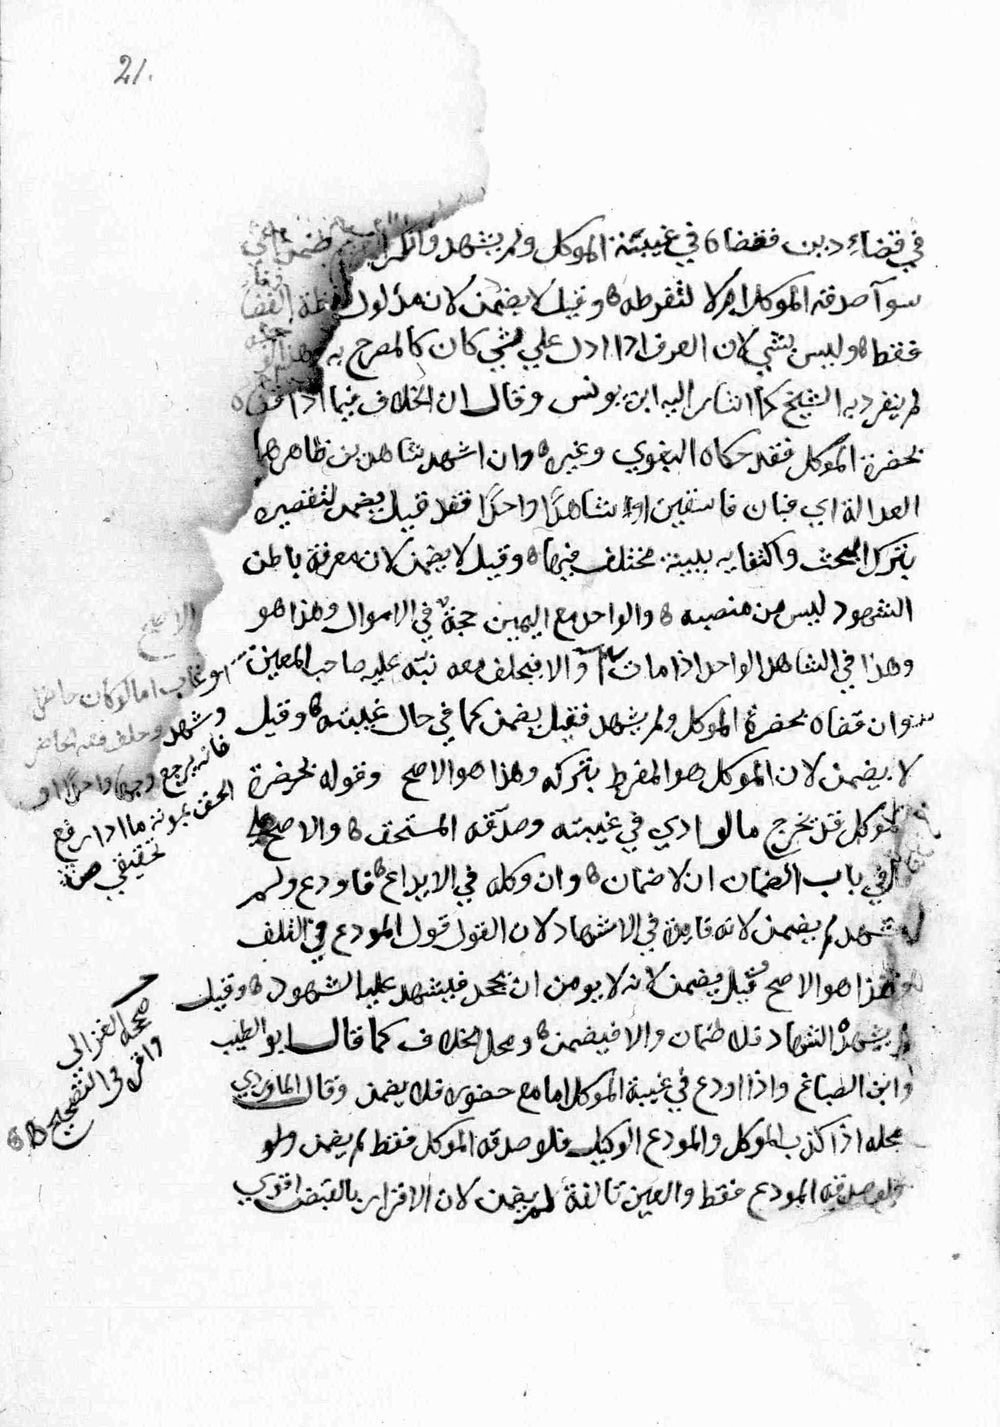 21.
في قضاء دين فقضاه في غيبة الموكل ولم يشهد وانكر ضمن
سوآ صدقه الموكل ام لا لتفرطه وقيل لا يضمن لان مدلول لفظة القضا
فقط وليس بشي لان العرف اذا دل علي شي كان كالمصرح به وهذا
لم ينفرد به الشيخ كما اشار اليه ابن يونس وقال ان الخلاف فيما اذا قضاه
بحضرة الموكل فقد حكاه البغوي وغيره وان اشهد شاهدين ظاهرهما
العدالة اي فبان فاسقين او شاهدًا واحدًا فقد قيل يضمن لتقصيره
بترك البحث واكتفايه ببينة مختلف فيها وقيل لا يضمن لان معرفة باطن
الشهود ليس من منصبه والواحد مع اليمين حجة في الاموال وهذا هو
الاصح
وهذا في الشاهد الواحد اذا مات والا فيحلف معه نبه عليه صاحب المعين
او غاب اما لو كان حاضرًا
وشهد وحلف معه
فانه يرجع
تحقيقي صح
وان قضاه بحضرة الموكل ولم يشهد فقيل يضمن كما في حال غيبته وقيل
لا يضمن لان الموكل هو المفرط بتركه وهذا هو الاصح وقوله بحضرة
الموكل قد يخرج ما لو ادي في غيبته وصدقه المستحق والاصح
في باب الضمان ان لا ضمان وان وكله في الايداع فاودع ولم
يشهد لم يضمن لانه فايدة في الاشهاد لان القول قول المودع في التلف
وهذا هو الاصح وقيل يضمن لانه لا يومن ان يجحد فيشهد عليه الشهود وقيل
صححه الغزالي
واقره في التصحيح
فلا ضمان والا فيضمن ومحل الخلاف كما قال ابو الطيب
وابن الصباغ واذا اودع في غيبة الموكل اما مع حضوره فلا يضمن وقال الماوردي
محله اذا كذب الموكل والمودع الوكيل فلو صدقه الموكل فقط لم يضمن ولو
صدقه المودع فقط والعين تالفة لم يضمن لان الاقرار بالقبض اقوي